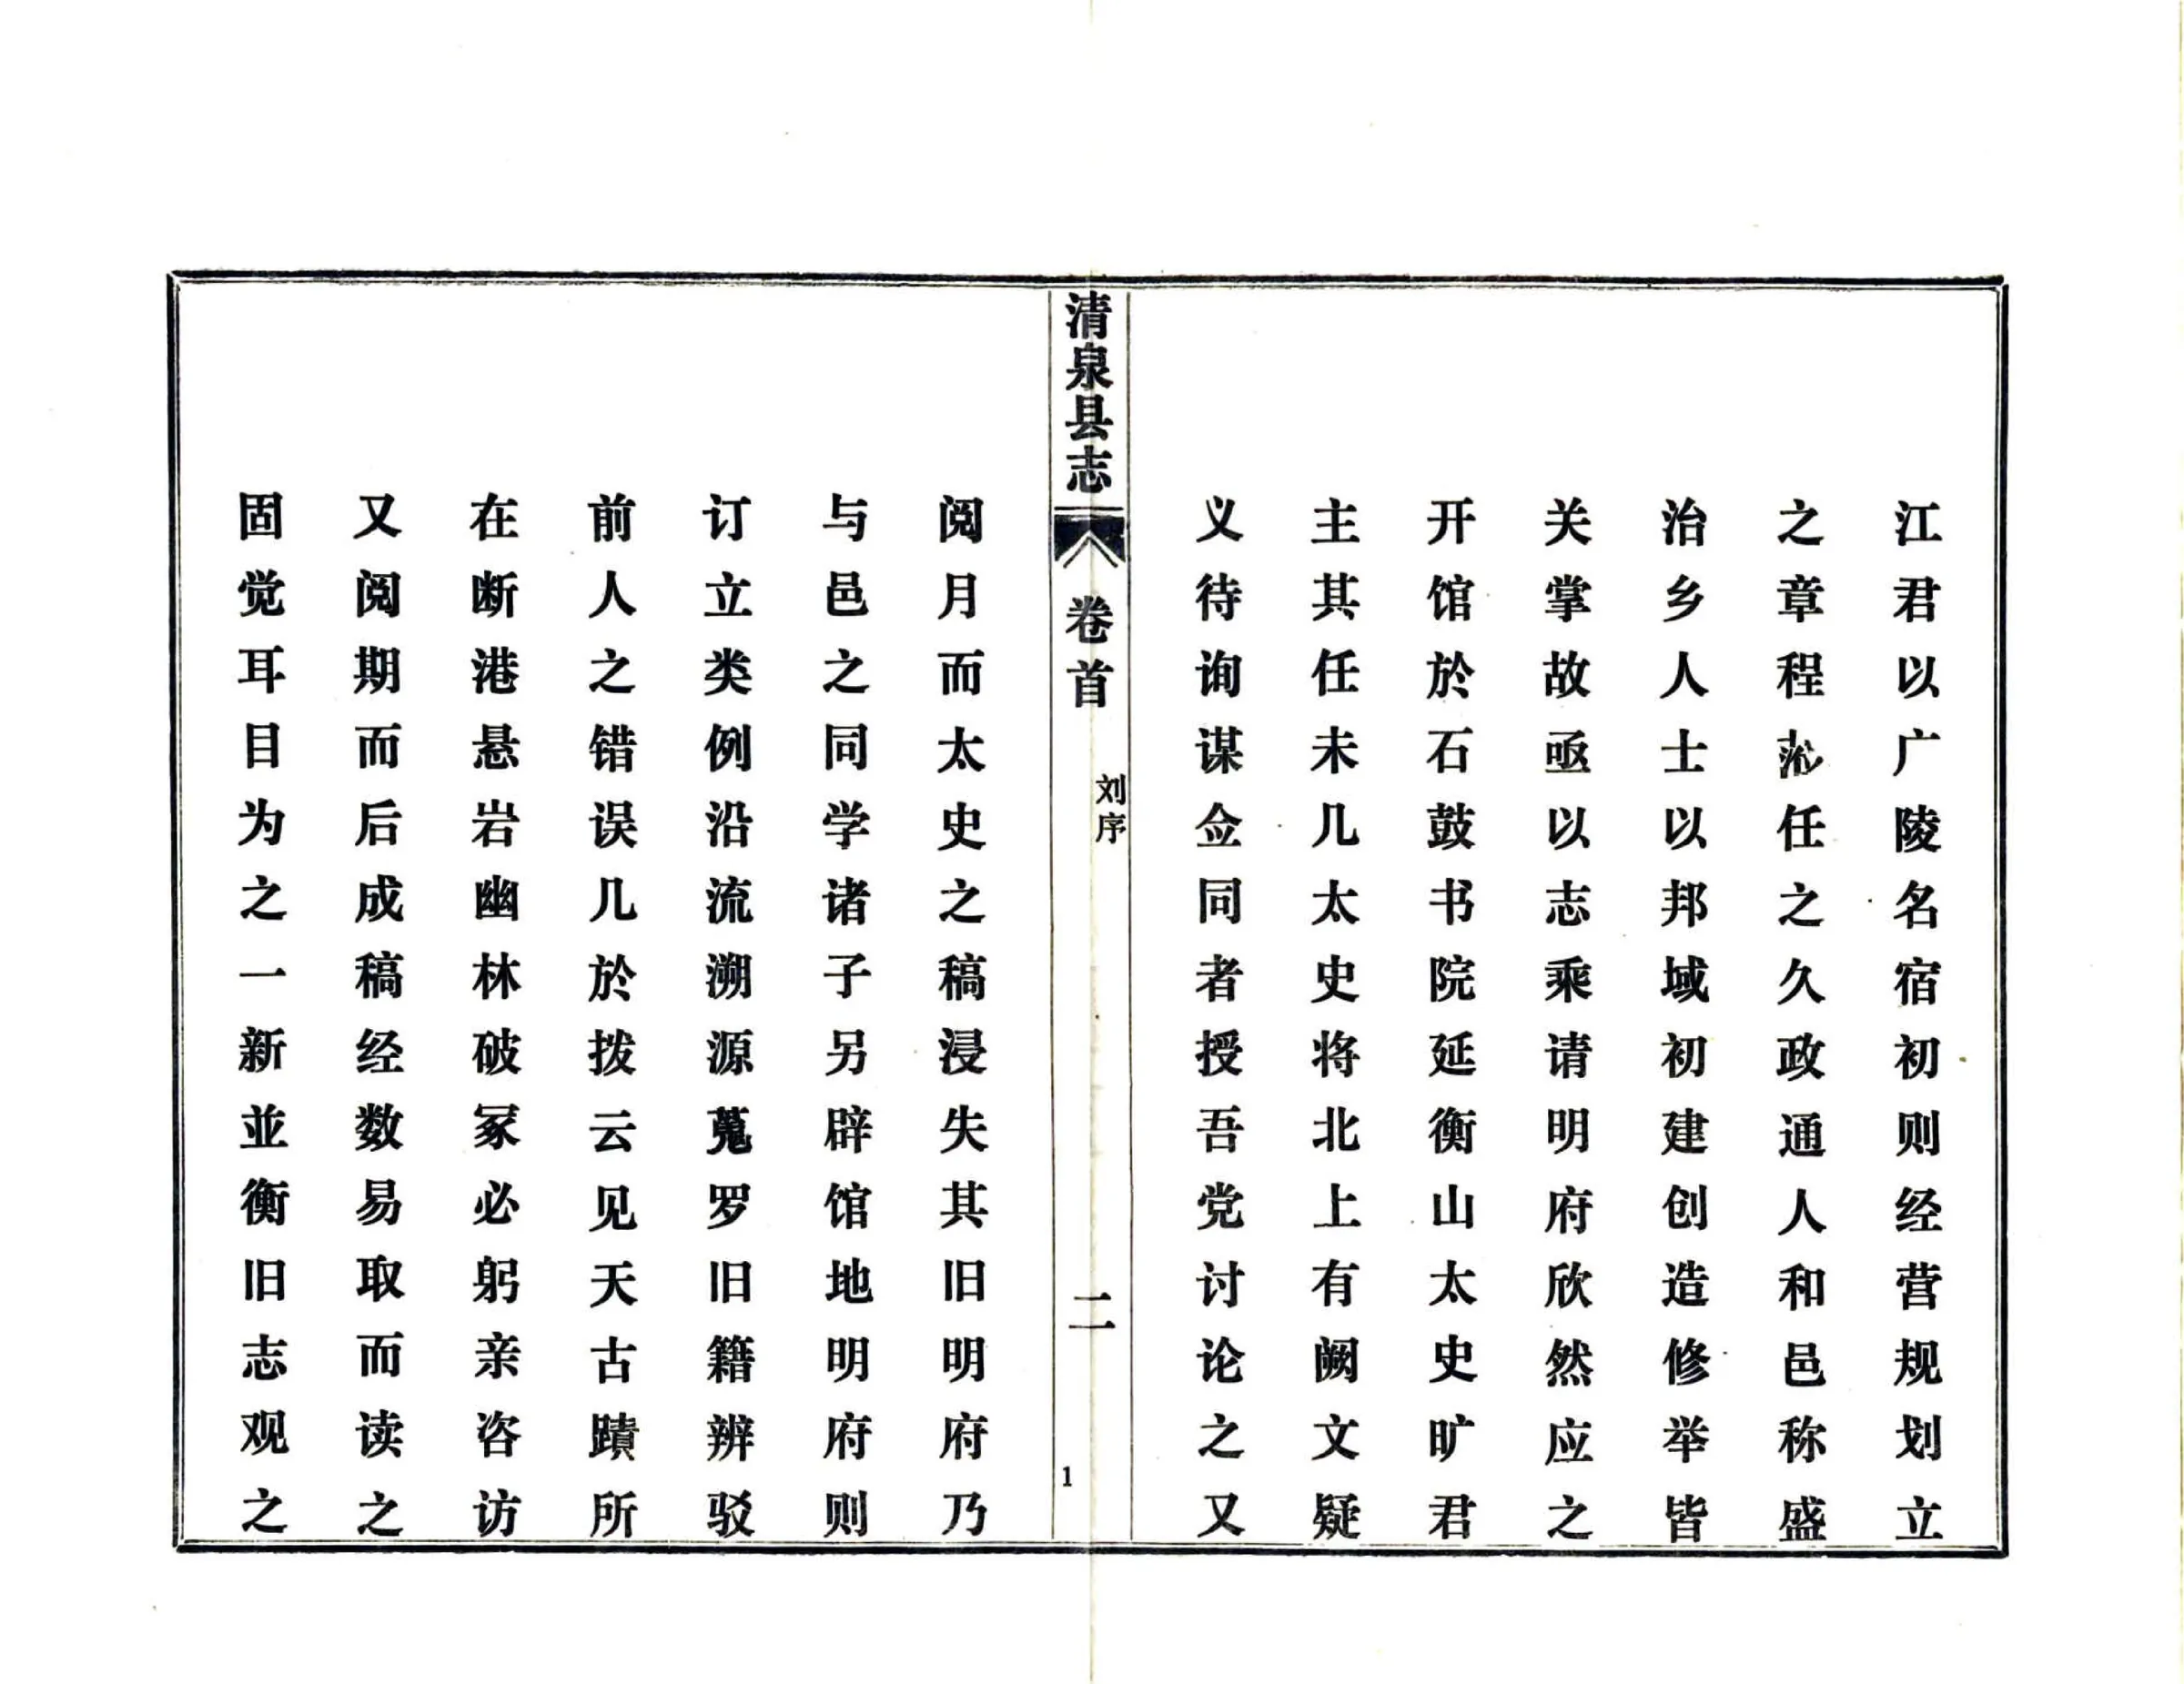 江君以广陵名宿初则经营规划立
之章程沁任之久政通人和邑称盛
治乡人士以邦域初建创造修举皆
关掌故亟以志乘请明府欣然应之
开馆於石鼓书院延衡山太史旷君
主其任未几太史将北上有阙文疑
义待询谋佥同者授吾党讨论之又
清泉县志
卷首
刘序
二
1
阅月而太史之稿浸失其旧明府乃
与邑之同学诸子另辟馆地明府则
订立类例沿流溯源蒐罗旧籍辨驳
前人之错误几於拨云见天古蹟所
在断港悬岩幽林破冢必躬亲咨访
又阅期而后成稿经数易取而读之
固觉耳目为之一新並衡旧志观之